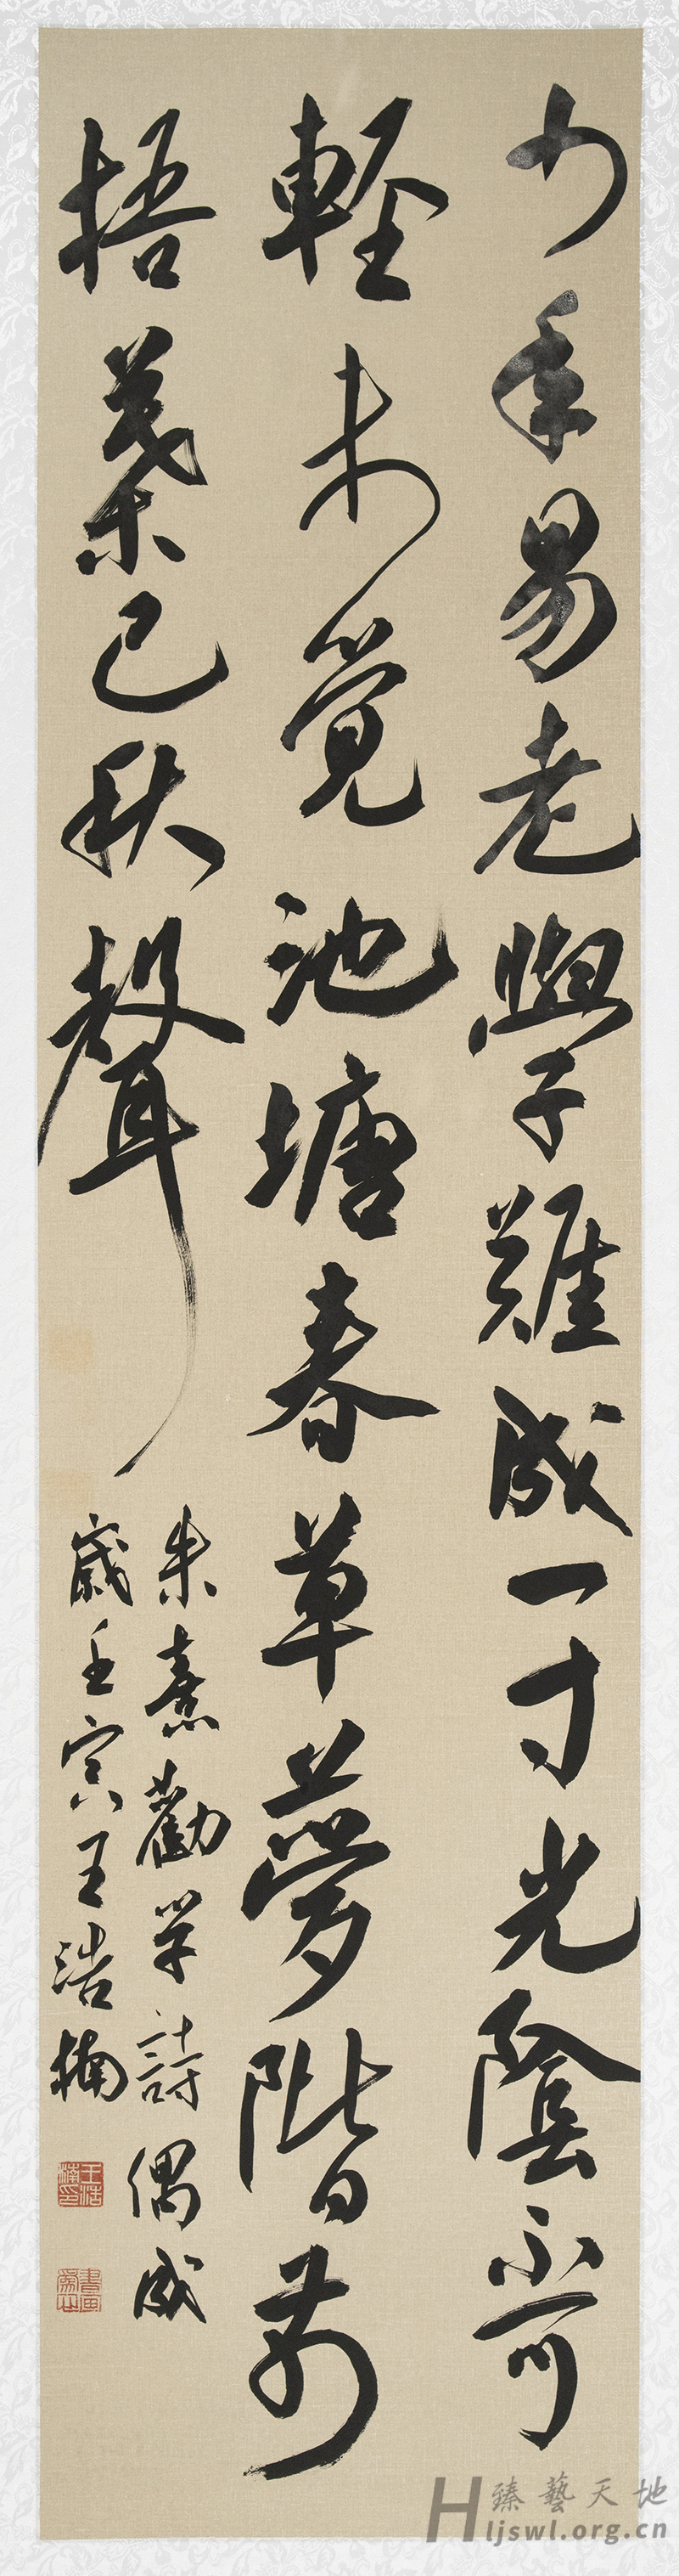 少年易老學難成一寸光陰不可
輕未覺池塘春草夢階前
梧葉已秋聲
朱熹勸学詩偶成
歳壬寅王浩楠
王浩楠印
臻藝天地
Hljswl.org.cn